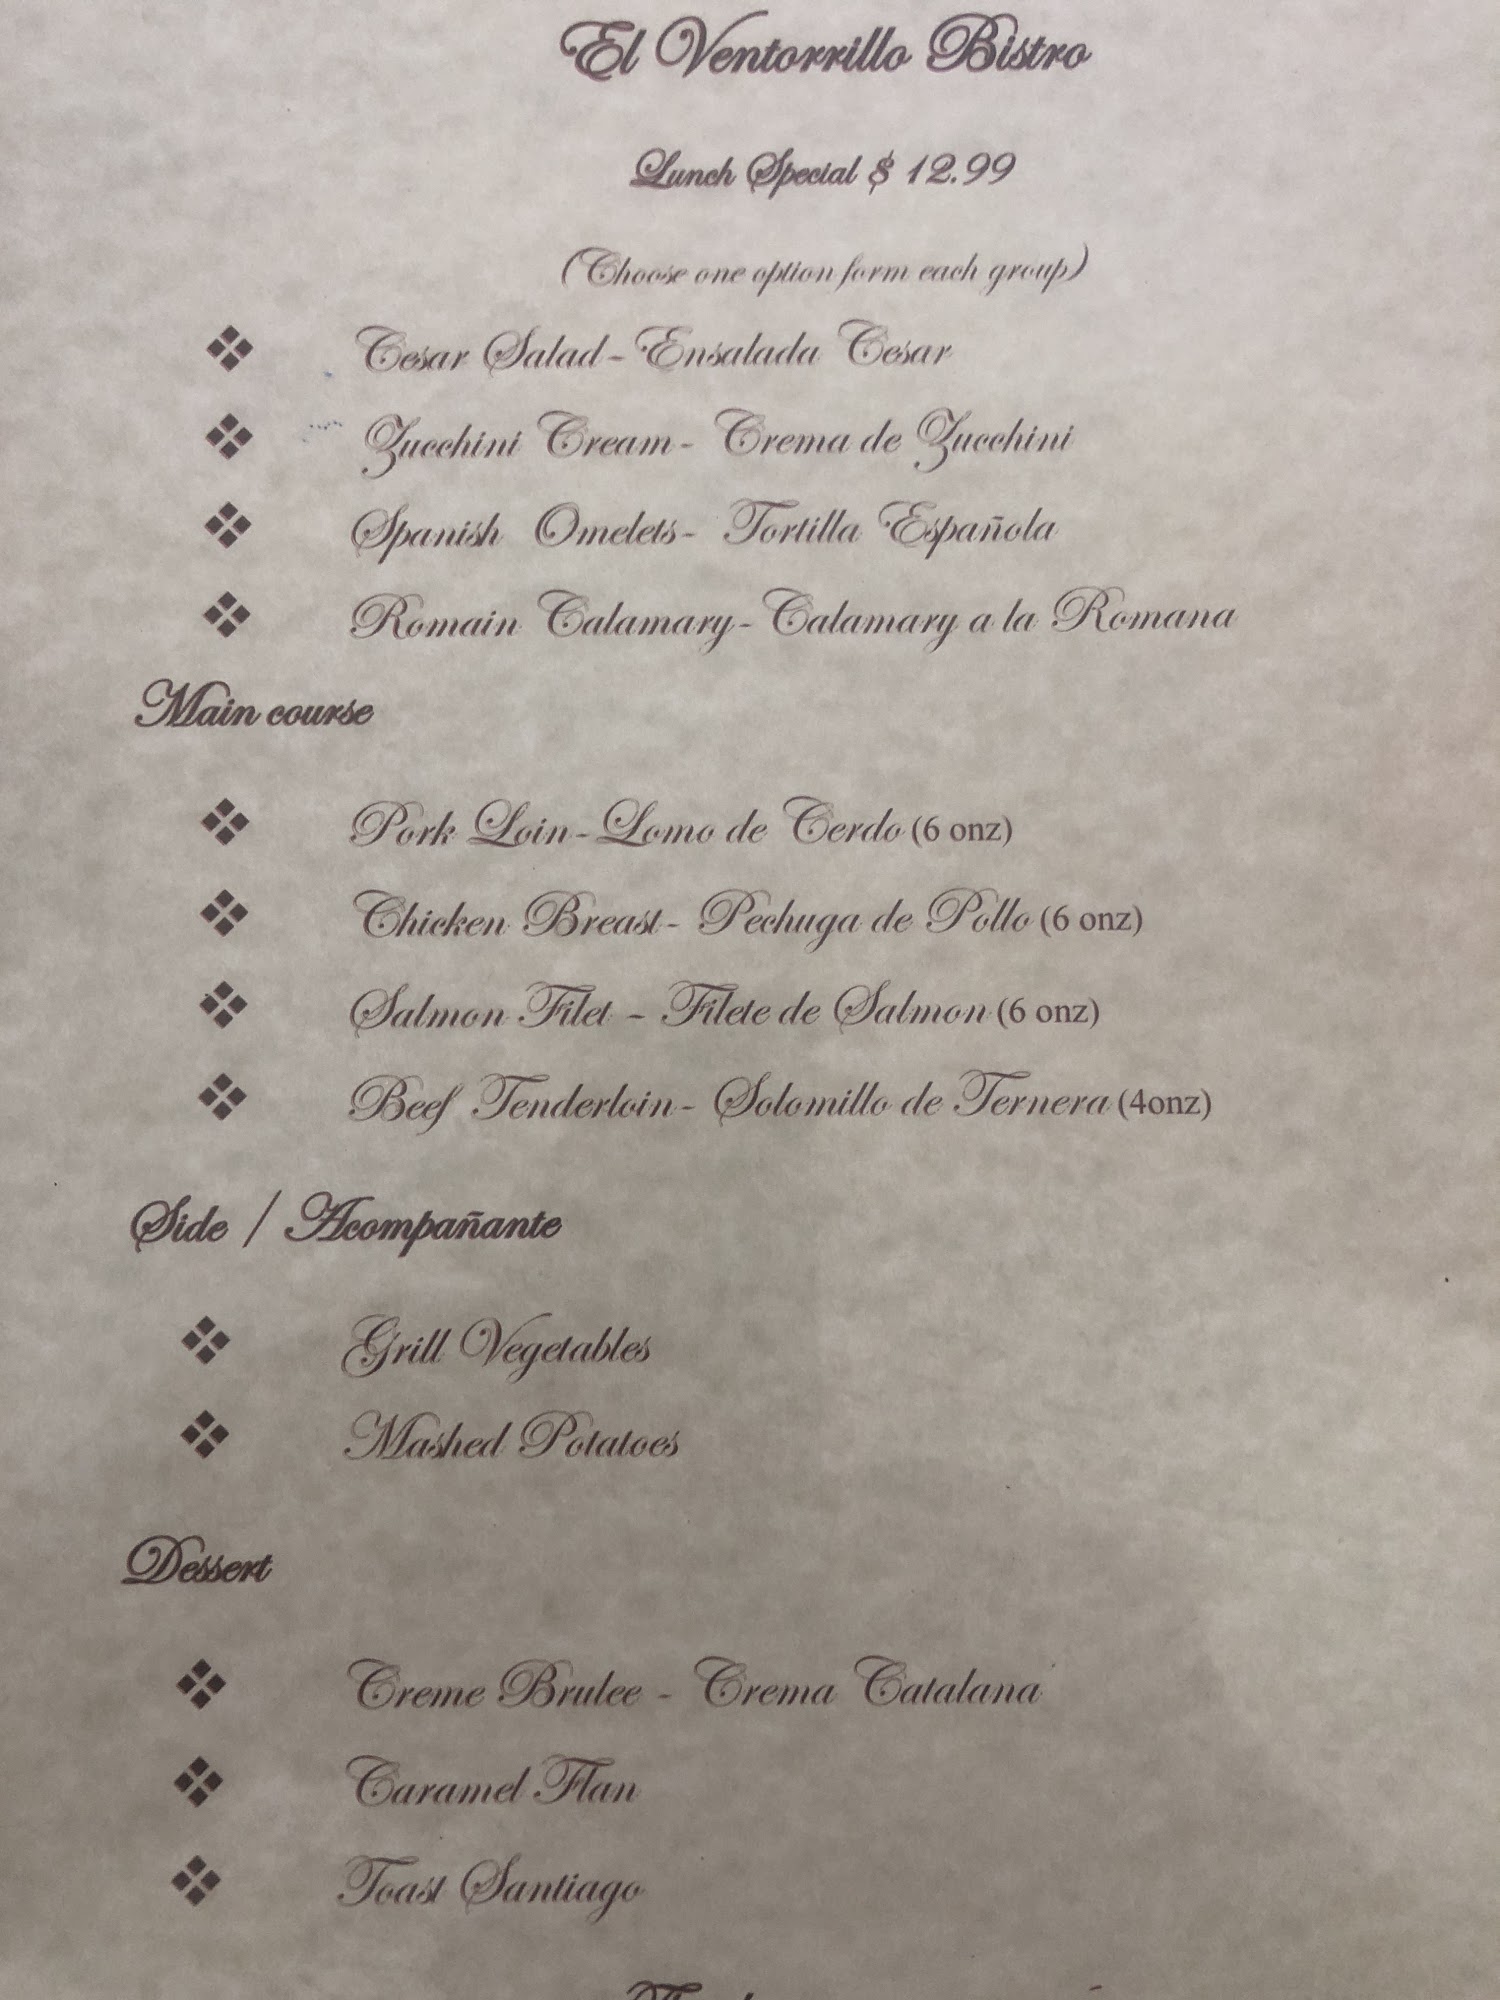 El Ventorrillo Bistro
Lunch Special $ 12.99
(Choose one option form each group)
❖ Cesar Salad-Ensalada Cesar
❖ Zucchini Cream- Crema de Zucchini
❖ Spanish Omelets- Tortilla Española
❖ Romain Calamary-Calamary a la Romana
Main course
❖ Pork Loin-Lomo de Cerdo (6 onz)
❖ Chicken Breast- Pechuga de Pollo (6 onz)
❖ Salmon Filet - Filete de Salmon (6 onz)
❖ Beef Tenderloin- Solomillo de Ternera (4onz)
Side / Acompañante
❖ Grill Vegetables
❖ Mashed Potatoes
Dessert
❖ Creme Brulee - Crema Catalana
❖ Caramel Flan
❖ Toast Santiago